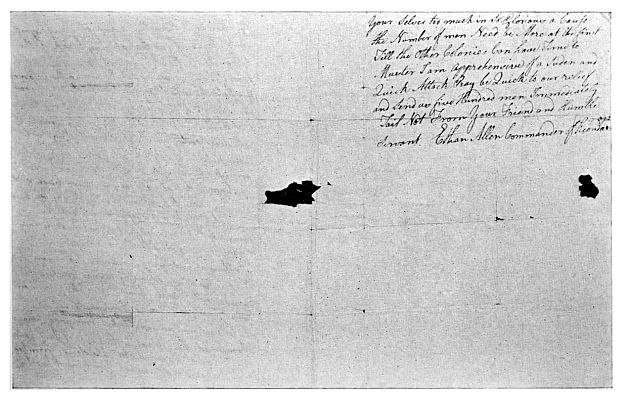 Your Selves too much in So Glorious a Cause
the Number of men Need be More at the first
Till the Other Colonies Can have Time to
Muster I am apprehensive of a Suden and
Quick Attack Pray be Quick to our relief
and Send us five Hundred men Immediately
Fail Not From Your Friend and Humble
Servant Ethan Allen Commander of